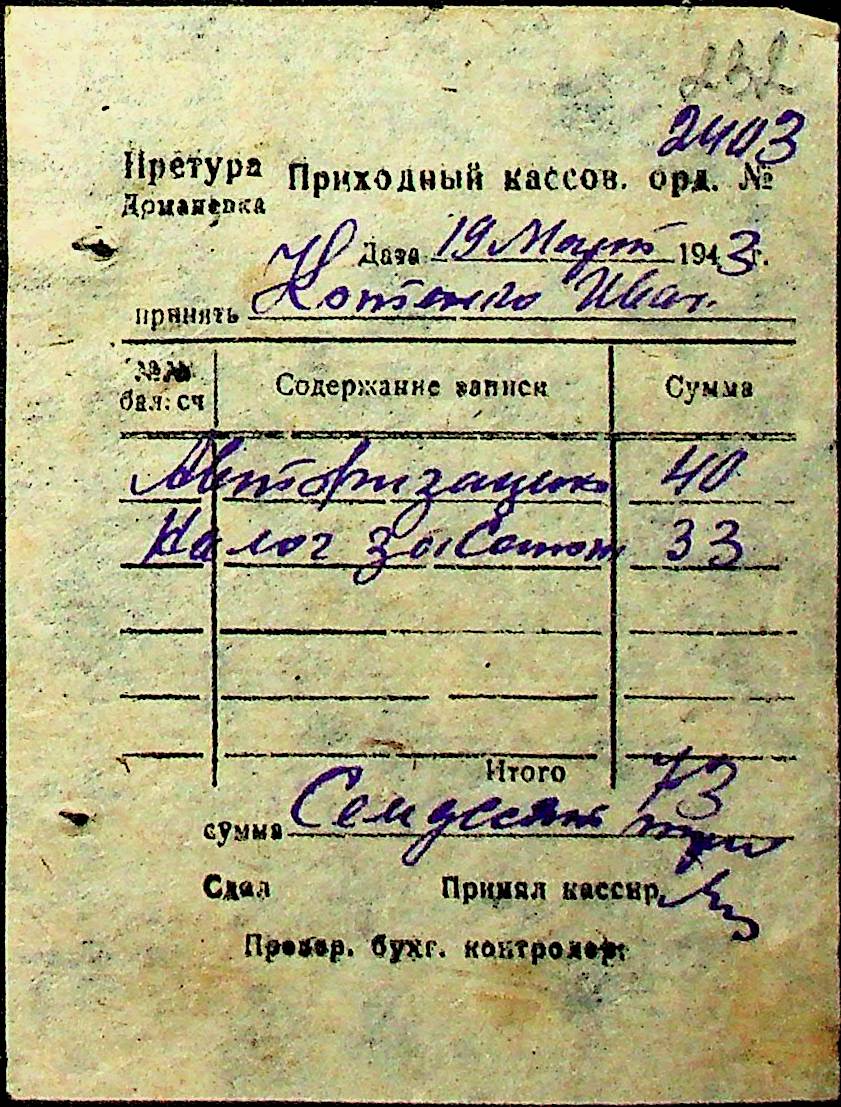 232
2403
Претура Приходный кассов. орд. №
Доманевка
Дата 19 Март 1943 г.
принять Котенко Иван.
№№ бал: сч Содержание записи Сумма
Авторизацию 40
Налог за 33
Итого 73
сумма Семдесят три
Сдал Принял кассир
Провер. бухг. контролер: